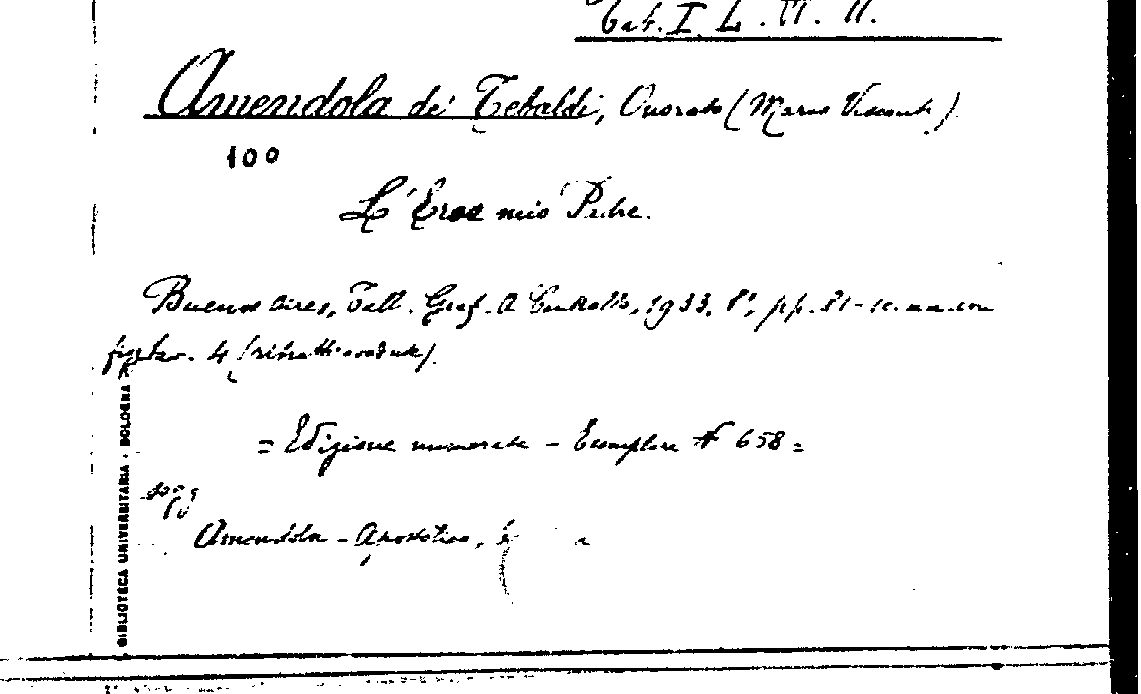 Cat. I. L. VI. 11.
Amendola de' Tebaldi, Onorato (Mario Visconti)
100
L'Eroe mio Padre.
Buenos Aires, Tall. Graf. A. 1933, 8°, pp. 81-
4 (ritratti e vedute).
= Edizione numerata - Esemplare N 658 =
sogg
Amendola - Apostolico,
BIBLIOTECA UNIVERSITARIA - BOLOGNA